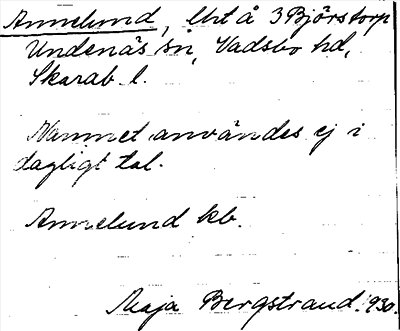 Annelund, Lht å 3 Björstorp
Undenäs sn, Vadsbo hd,
Skarab. l.
Namnet användes ej i
dagligt tal.
Annelund kb.
Maja Bergstrand. 930.